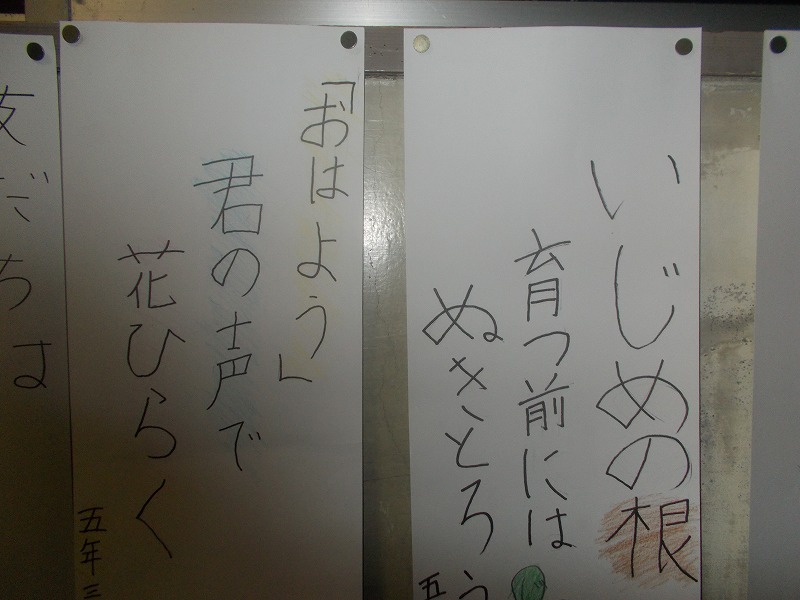 いじめの根
育つ前には
ぬきとろう
五
「おはよう」
君の声で
花ひらく
五年三
友だちは